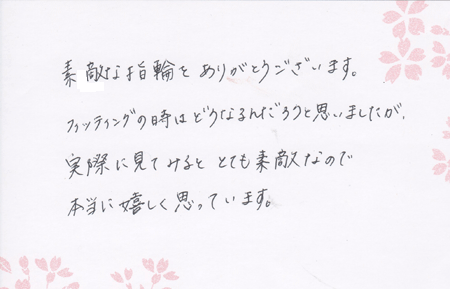 素敵な指輪をありがとうございます。
フィッティングの時はどうなるんだろうと思いましたが、
実際に見てみると とても素敵なので
本当に嬉しく思っています。